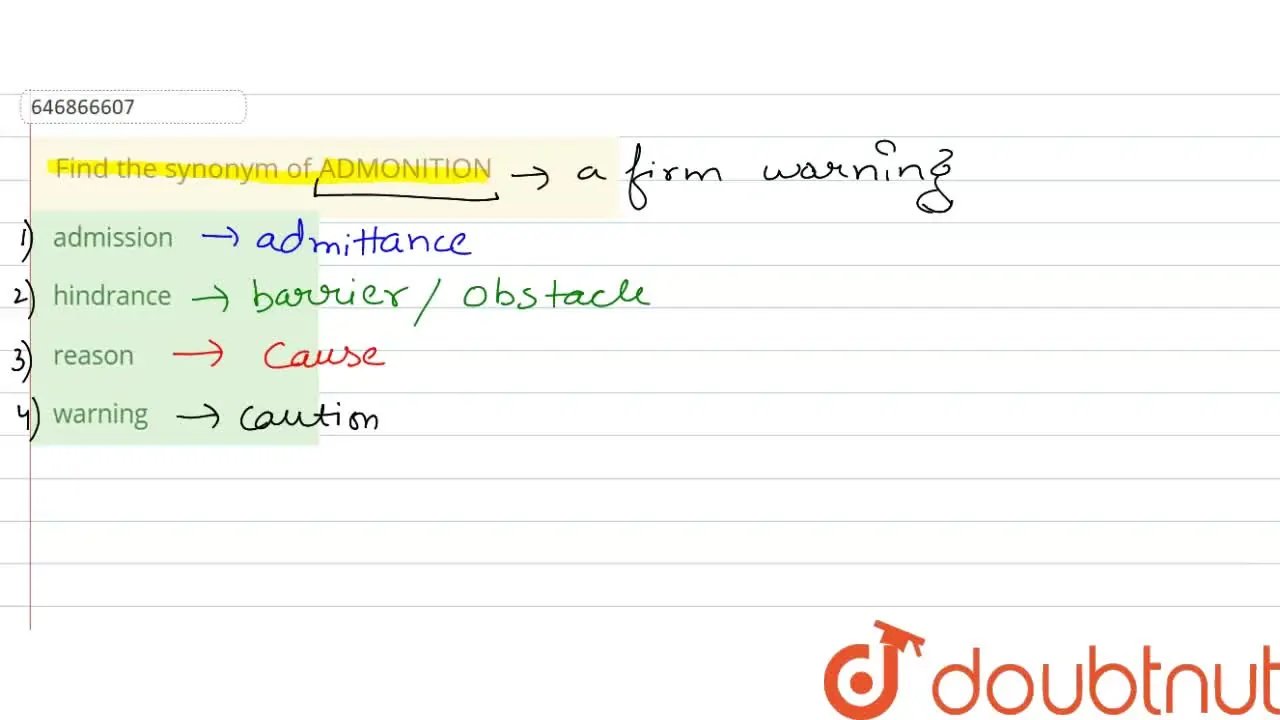 646866607
Find the synonym of ADMONITION → a firm warning
1) admission → admittance
2) hindrance → barrier / obstacle
3) reason → cause
4) warning → caution
doubtnut